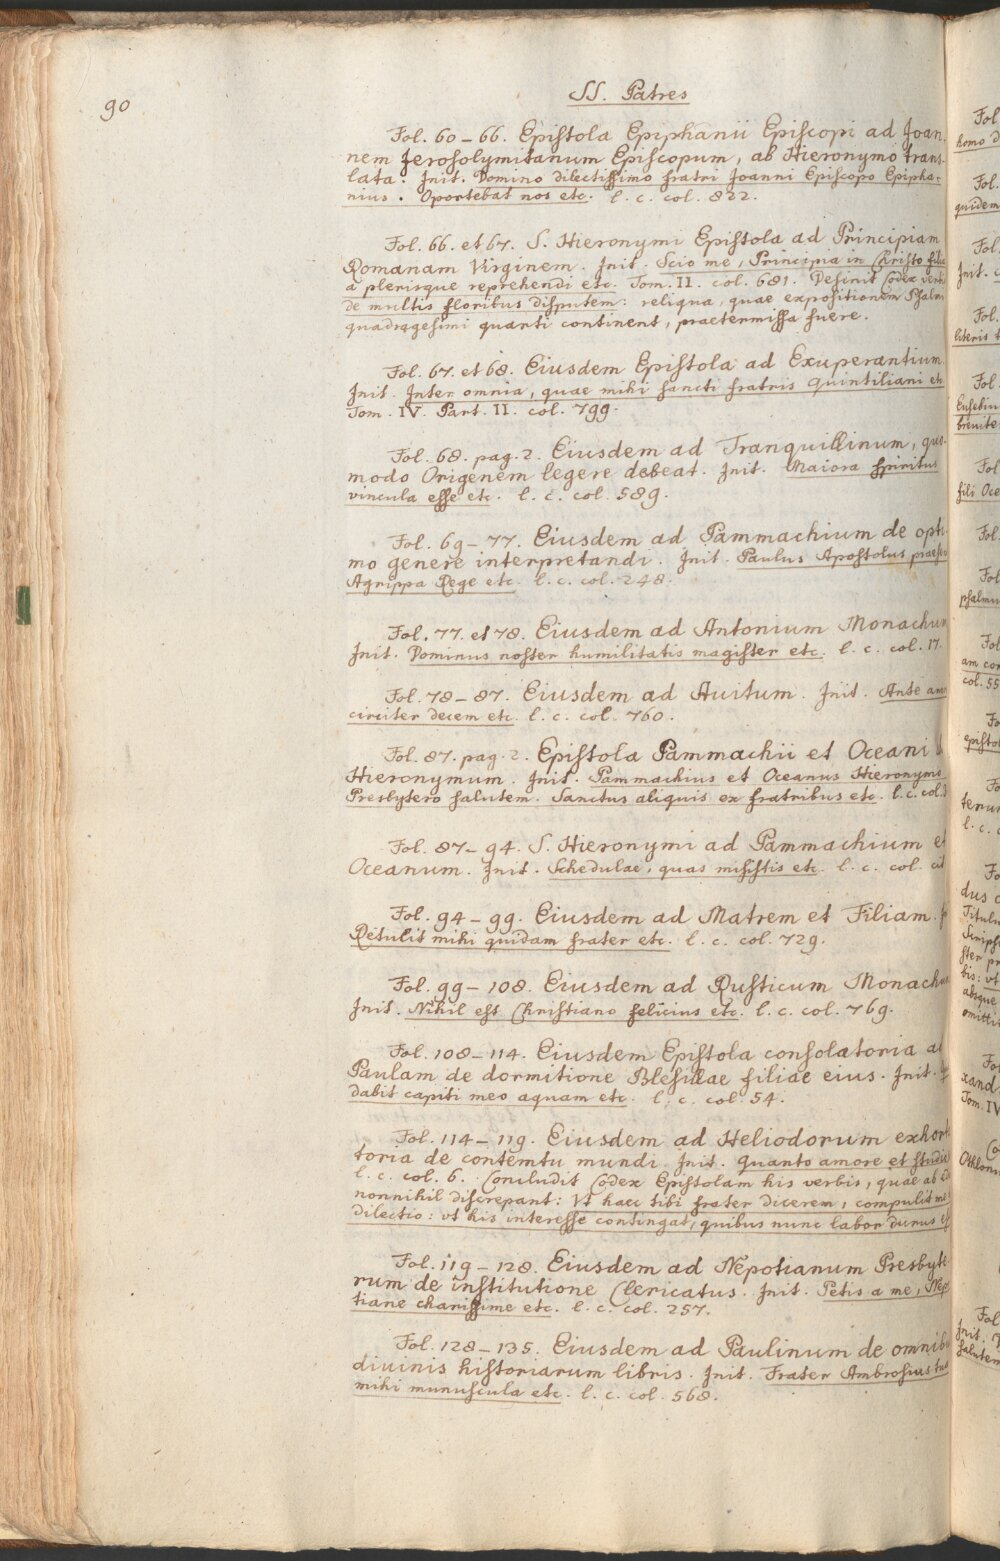 90
SS. Patres
Fol. 60 – 66. Epiſtola Epiphanii Epiſcopi ad Joan-
nem Jeroſolymitanum Epiſcopum, ab Hieronymo trans-
lata. Init. Domino dilectiſſimo fratri Joanni Epiſcopo Epipha-
nius. Oportebat nos etc. l. c. col. 822.
Fol. 66. et 67. S. Hieronymi Epiſtola ad Principiam
Romanam Virginem. Init. Scio me, Principia in Chriſto filia
a plerisque reprehendi etc. Tom. II. col. 681. Deſinit Codex
de multis floribus diſputem: reliqua, quae expoſitionem Pſalmi
quadrageſimi quarti continent, praetermiſſa fuere.
Fol. 67. et 68. Eiusdem Epiſtola ad Exuperantium
Init. Inter omnia, quae mihi ſancti fratris Quintiliani etc
Tom. IV. Part. II. col. 799.
Fol. 68. pag. 2. Eiusdem ad Tranquillinum, quo-
modo Origenem legere debeat. Init. Maiora ſpiritus
vincula eſſe etc. l. c. col. 589.
Fol. 69 – 77. Eiusdem ad Pammachium de opti-
mo genere interpretandi. Init. Paulus Apoſtolus
Agrippa Rege etc. l. c. col. 248.
Fol. 77. et 78. Eiusdem ad Antonium Monachum
Init. Dominus noſter humilitatis magiſter etc. l. c. col. 17.
Fol. 78 – 87. Eiusdem ad Auitum. Init. Ante
circiter decem etc. l. c. col. 760.
Fol. 87. pag. 2. Epiſtola Pammachii et Oceani
Hieronymum. Init. Pammachius et Oceanus Hieronymo
Presbytero ſalutem. Sanctus aliquis ex fratribus etc. l. c. col.
Fol. 87 – 94. S. Hieronymi ad Pammachium et
Oceanum. Init. Schedulae, quas miſiſtis etc. l. c. col. cit
Fol. 94 – 99. Eiusdem ad Matrem et Filiam.
Retulit mihi quidam frater etc. l. c. col. 729.
Fol. 99 – 108. Eiusdem ad Ruſticum Monachum
Init. Nihil eſt Chriſtiano felicius etc. l. c. col. 769.
Fol. 108 – 114. Eiusdem Epiſtola conſolatoria ad
Paulam de dormitione Bleſillae filiae eius. Init.
dabit capiti meo aquam etc. l. c. col. 54.
Fol. 114 – 119. Eiusdem ad Heliodorum exhor-
toria de contemtu mundi. Init. Quanto amore et ſtudio
l. c. col. 6. Concludit Codex Epiſtolam his verbis, quae ab
nonnihil diſcrepant: Vt haec tibi frater dicerem, compulit me
dilectio: vt his intereſſe contingat, quibus nunc labor durus eſt
Fol. 119 – 128. Eiusdem ad Nepotianum Presbyte-
rum de inſtitutione Clericatus. Init. Petis a me, Nepo-
tiane chariſſime etc. l. c. col. 257.
Fol. 128 – 135. Eiusdem ad Paulinum de omnibus
diuinis hiſtoriarum libris. Init. Frater Ambroſius tua
mihi munuſcula etc. l. c. col. 568.